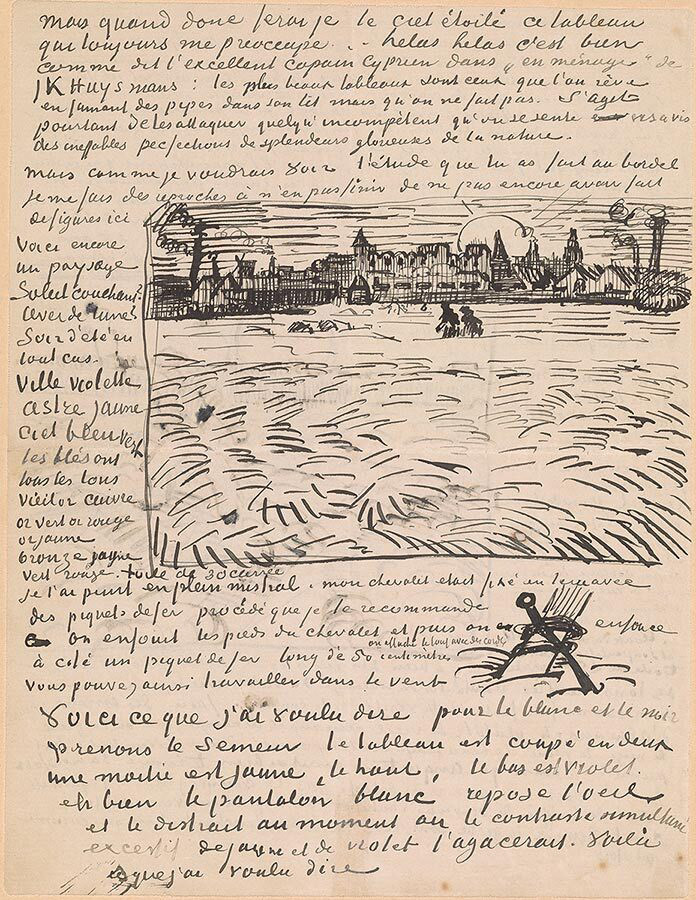 mais quand donc ferai je le ciel étoilé ce tableau
qui toujours me préoccupe. .. helas helas c'est bien
comme dit l'excellent copain Cyprien dans "en ménage" de
JK Huysmans : les plus beaux tableaux sont ceux que l'on rêve
en fumant des pipes dans son lit mais qu'on ne fait pas. S'agit
pourtant de les attaquer quelqu'incompétent qu'on se sente vis à vis
des ineffables perfections de splendeurs glorieuses de la nature.
mais comme je voudrais voir l'étude que tu as fait au bordel
je me fais des reproches à n'en pas finir de ne pas encore avoir fait
de figures ici
Voici encore
un paysage
Soleil couchant?
lever de lune?
Soir d'été en
tout cas.
Ville violette
astre jaune
ciel bleu vert
les blés ont
tous les tons
vieil or cuivre
or vert or rouge
or jaune
bronze jaune
vert rouge. toile de 30 carrée
je l'ai peint en plein mistral. mon chevalet etait fixé en terre avec
des piquets de fer procédé que je te recommande
on enfouit les pieds du chevalet et puis on enfonce
à côté un piquet de fer long de 50 centimètres
on attache le tout avec des cordes
vous pouvez ainsi travailler dans le vent
Voici ce que j'ai voulu dire pour le blanc et le noir
prenons le Semeur le tableau est coupé en deux
une moitié est jaune, le haut, le bas est violet.
eh bien le pantalon blanc repose l'oeil
et le distrait au moment ou le contraste simultané
excessif de jaune et de violet l'agacerait. Voilà
ce que j'ai voulu dire